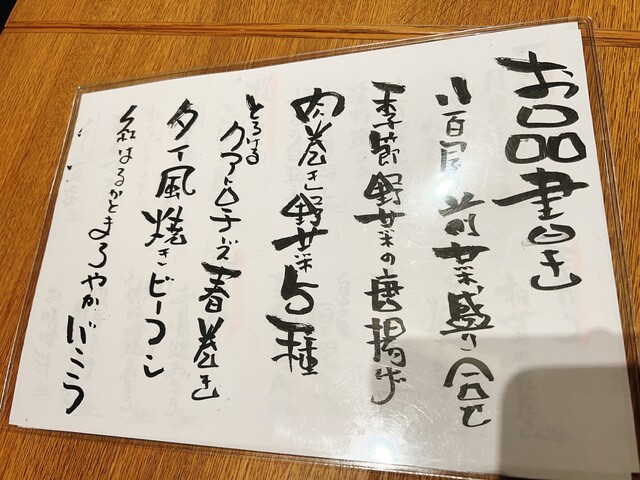 お品書き
八百屋の前菜盛り合せ
季節野菜の唐揚げ
肉巻き野菜5種
とろける
クアトロチーズ春巻き
タイ風焼きビーフン
紅はるかとまろやかバニラ